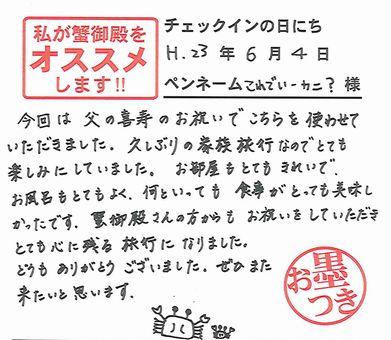 私が蟹御殿を
オススメ
します!!
チェックインの日にち
H.23年6月4日
ペンネームてれでぃーカニ?様
今回は父の喜寿のお祝いでこちらを使わせて
いただきました。久しぶりの家族旅行なのでとても
楽しみにしていました。お部屋もとてもきれいで、
お風呂もとてもよく、何といっても食事がとっても美味し
かったです。蟹御殿さんの方からもお祝いをしていただき
とても心に残る旅行になりました。
どうもありがとうございました。ぜひまた
来たいと思います。
お墨つき